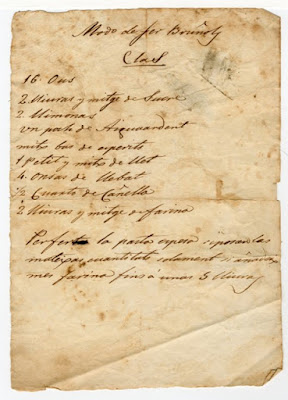 Modo de fer Bruñols
Clas
16 Ous
2 lliuras y mitge de Sucre
2 llimonas
un poch de Aiguardent
mitx got de esperit
1 Petit y mitx de llet
4 Onsas de llebat
½ Cuarto de Cañella
2 lliuras y mitge de farina
Per fer la pasta espesa si posan las
mateixas cuantitats solament si añadix
mes farina fins á unas 5 lliuras